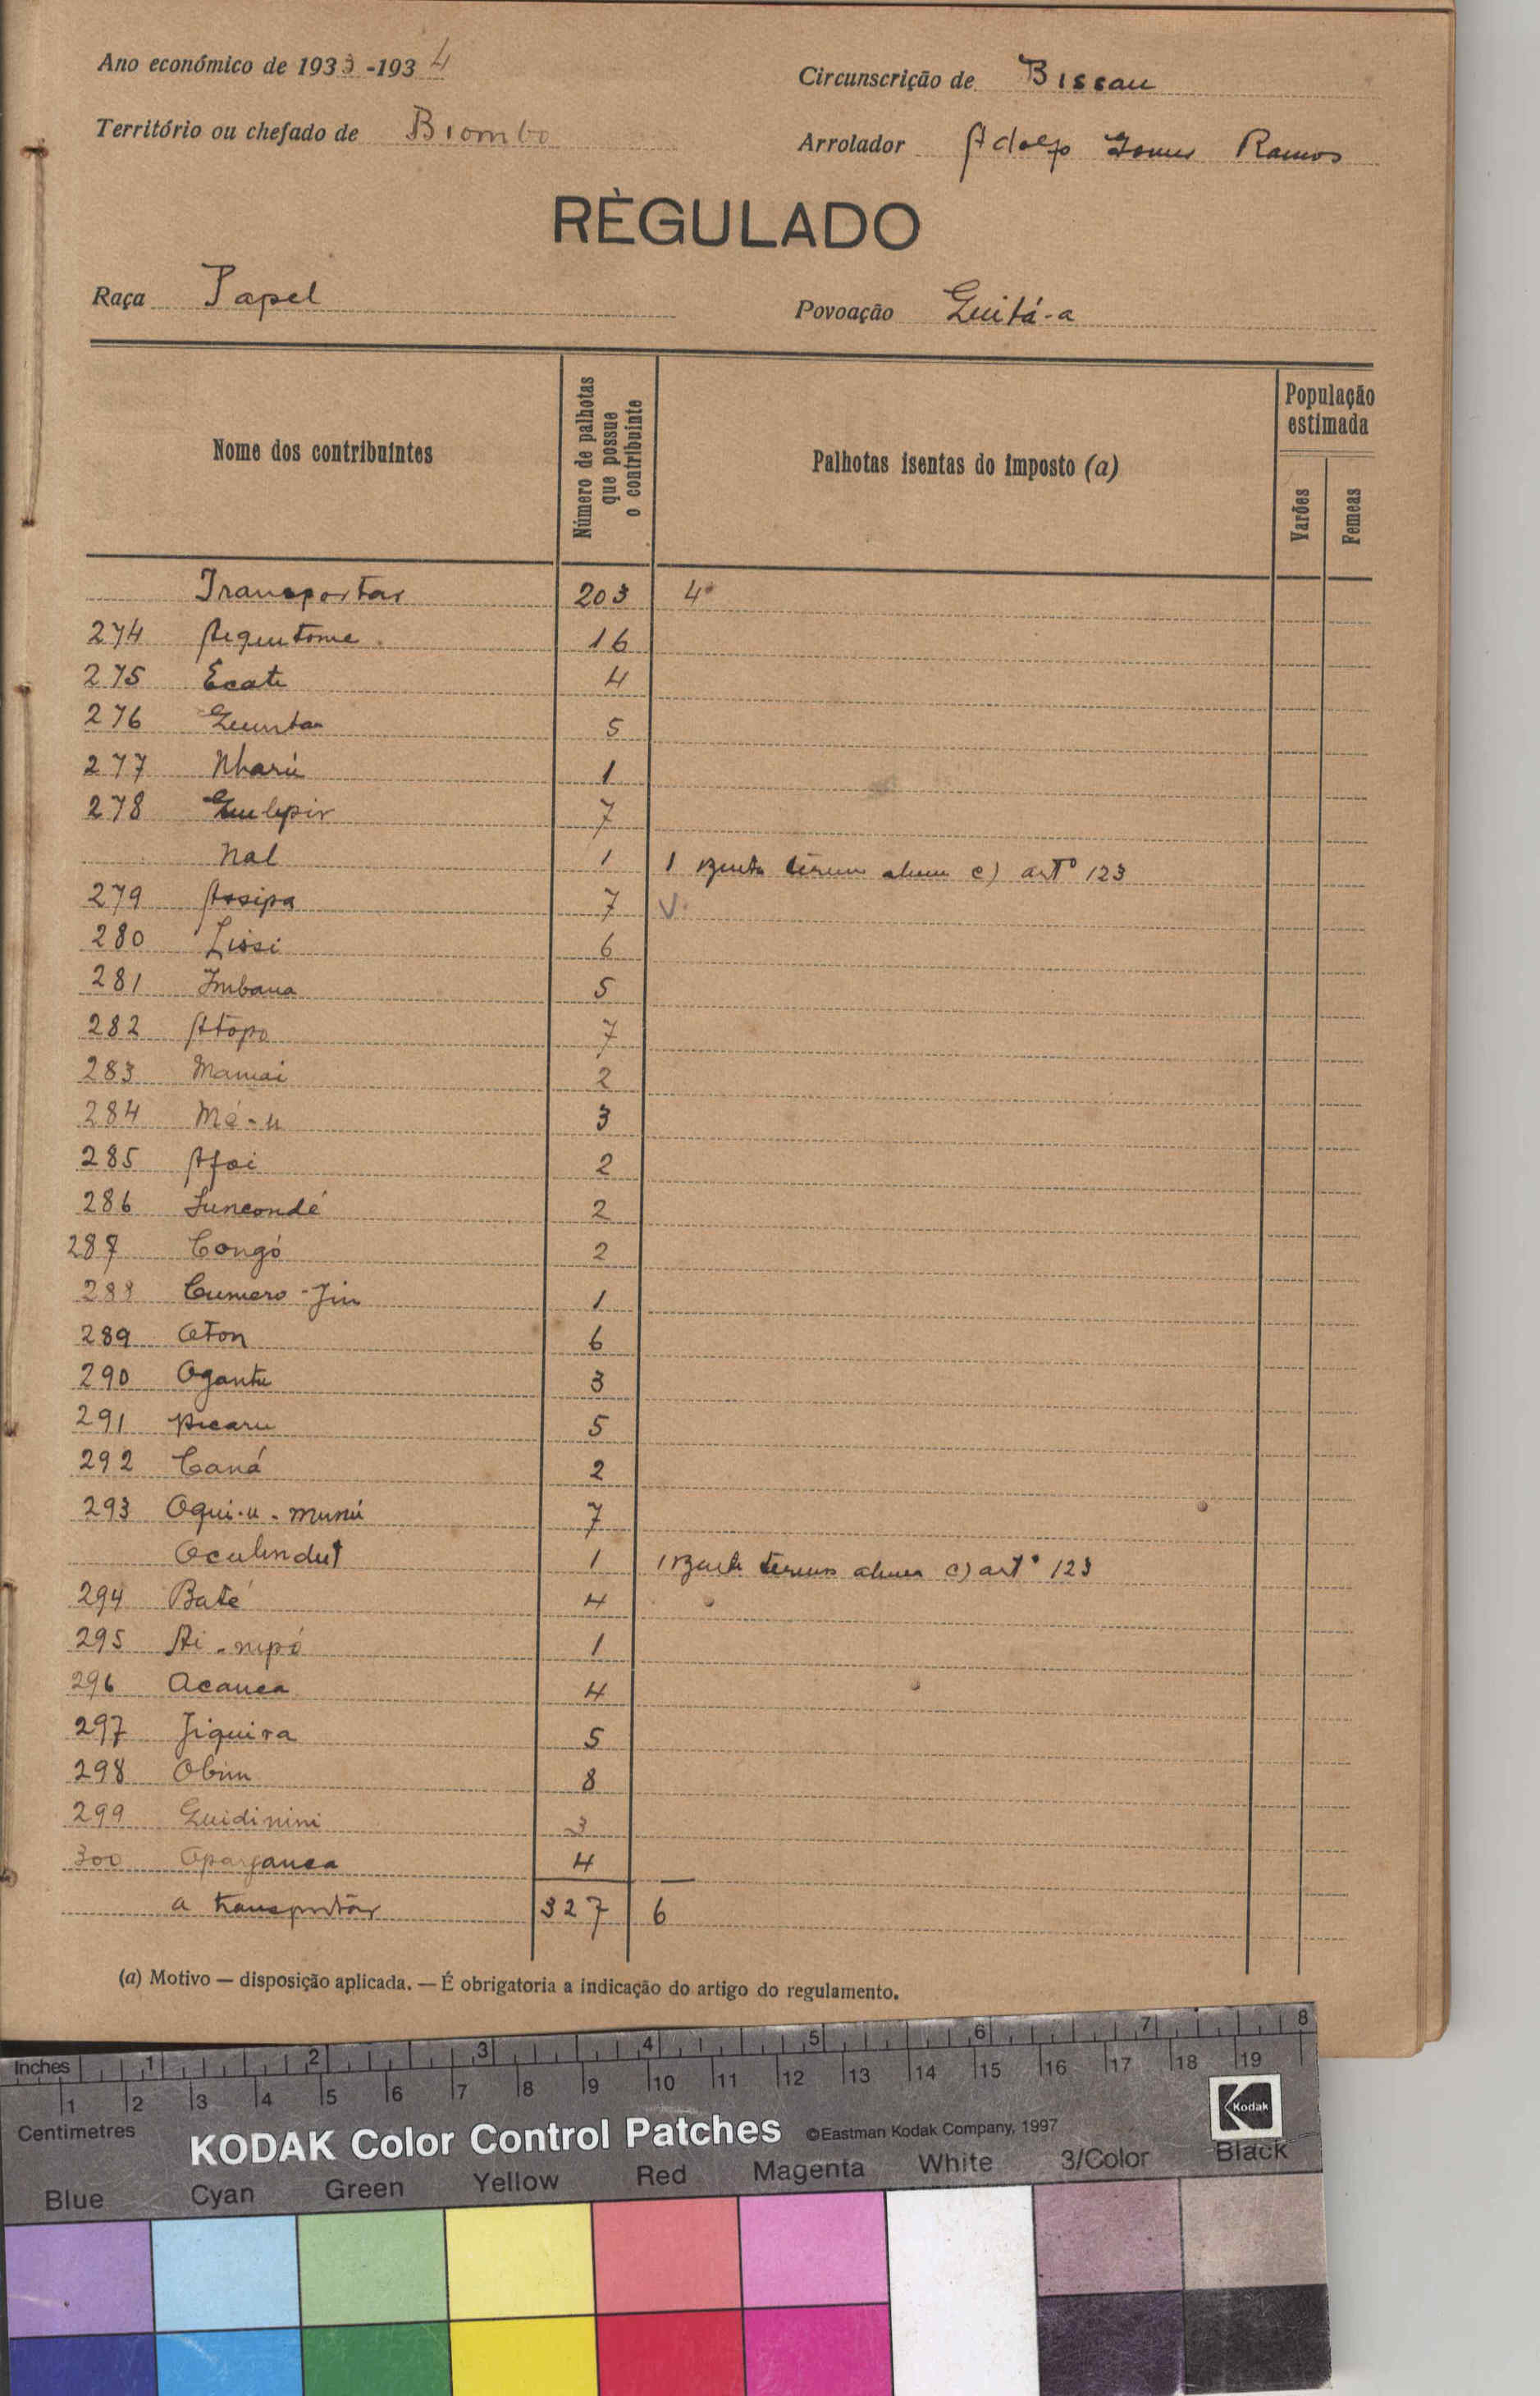 Ano económico de 1933-1934
Circunscrição de Bissau
Território ou chefado de Biombo
Arrolador Adolfo Gomes Ramos
RÈGULADO
Raça Papel
Povoação Quitá-a
Nome dos contribuintes
Número de palhotas que possue o contribuinte
Palhotas isentas do imposto (a)
População estimada
Varões
Femeas
Transportar 203 4
274 16
275 Ecate 4
276 5
277 Nharú 1
278 7
Nal 1 1 c) artº 123
279 Assipa 7 V
280 Lissi 6
281 Imbana 5
282 Atopo 7
283 Mamai 2
284 Mé-u 3
285 Afoi 2
286 Suncondé 2
287 Congó 2
288 Cumero-Jin 1
289 Oton 6
290 Ogante 3
291 5
292 Caná 2
293 Oqui-u-munú 7
1 1 c) artº 123
294 Baté 4
295 1
296 Acanca 4
297 Jiquira 5
298 Obim 8
299 Guidinini 3
300 4
a transportar 327 6
(a) Motivo — disposição aplicada. — É obrigatoria a indicação do artigo do regulamento.
Inches 1 2 3 4 5 6 7 8
1 2 3 4 5 6 7 8 9 10 11 12 13 14 15 16 17 18 19
Centimetres
KODAK Color Control Patches ©Eastman Kodak Company, 1997 Kodak
Blue Cyan Green Yellow Red Magenta White 3/Color Black